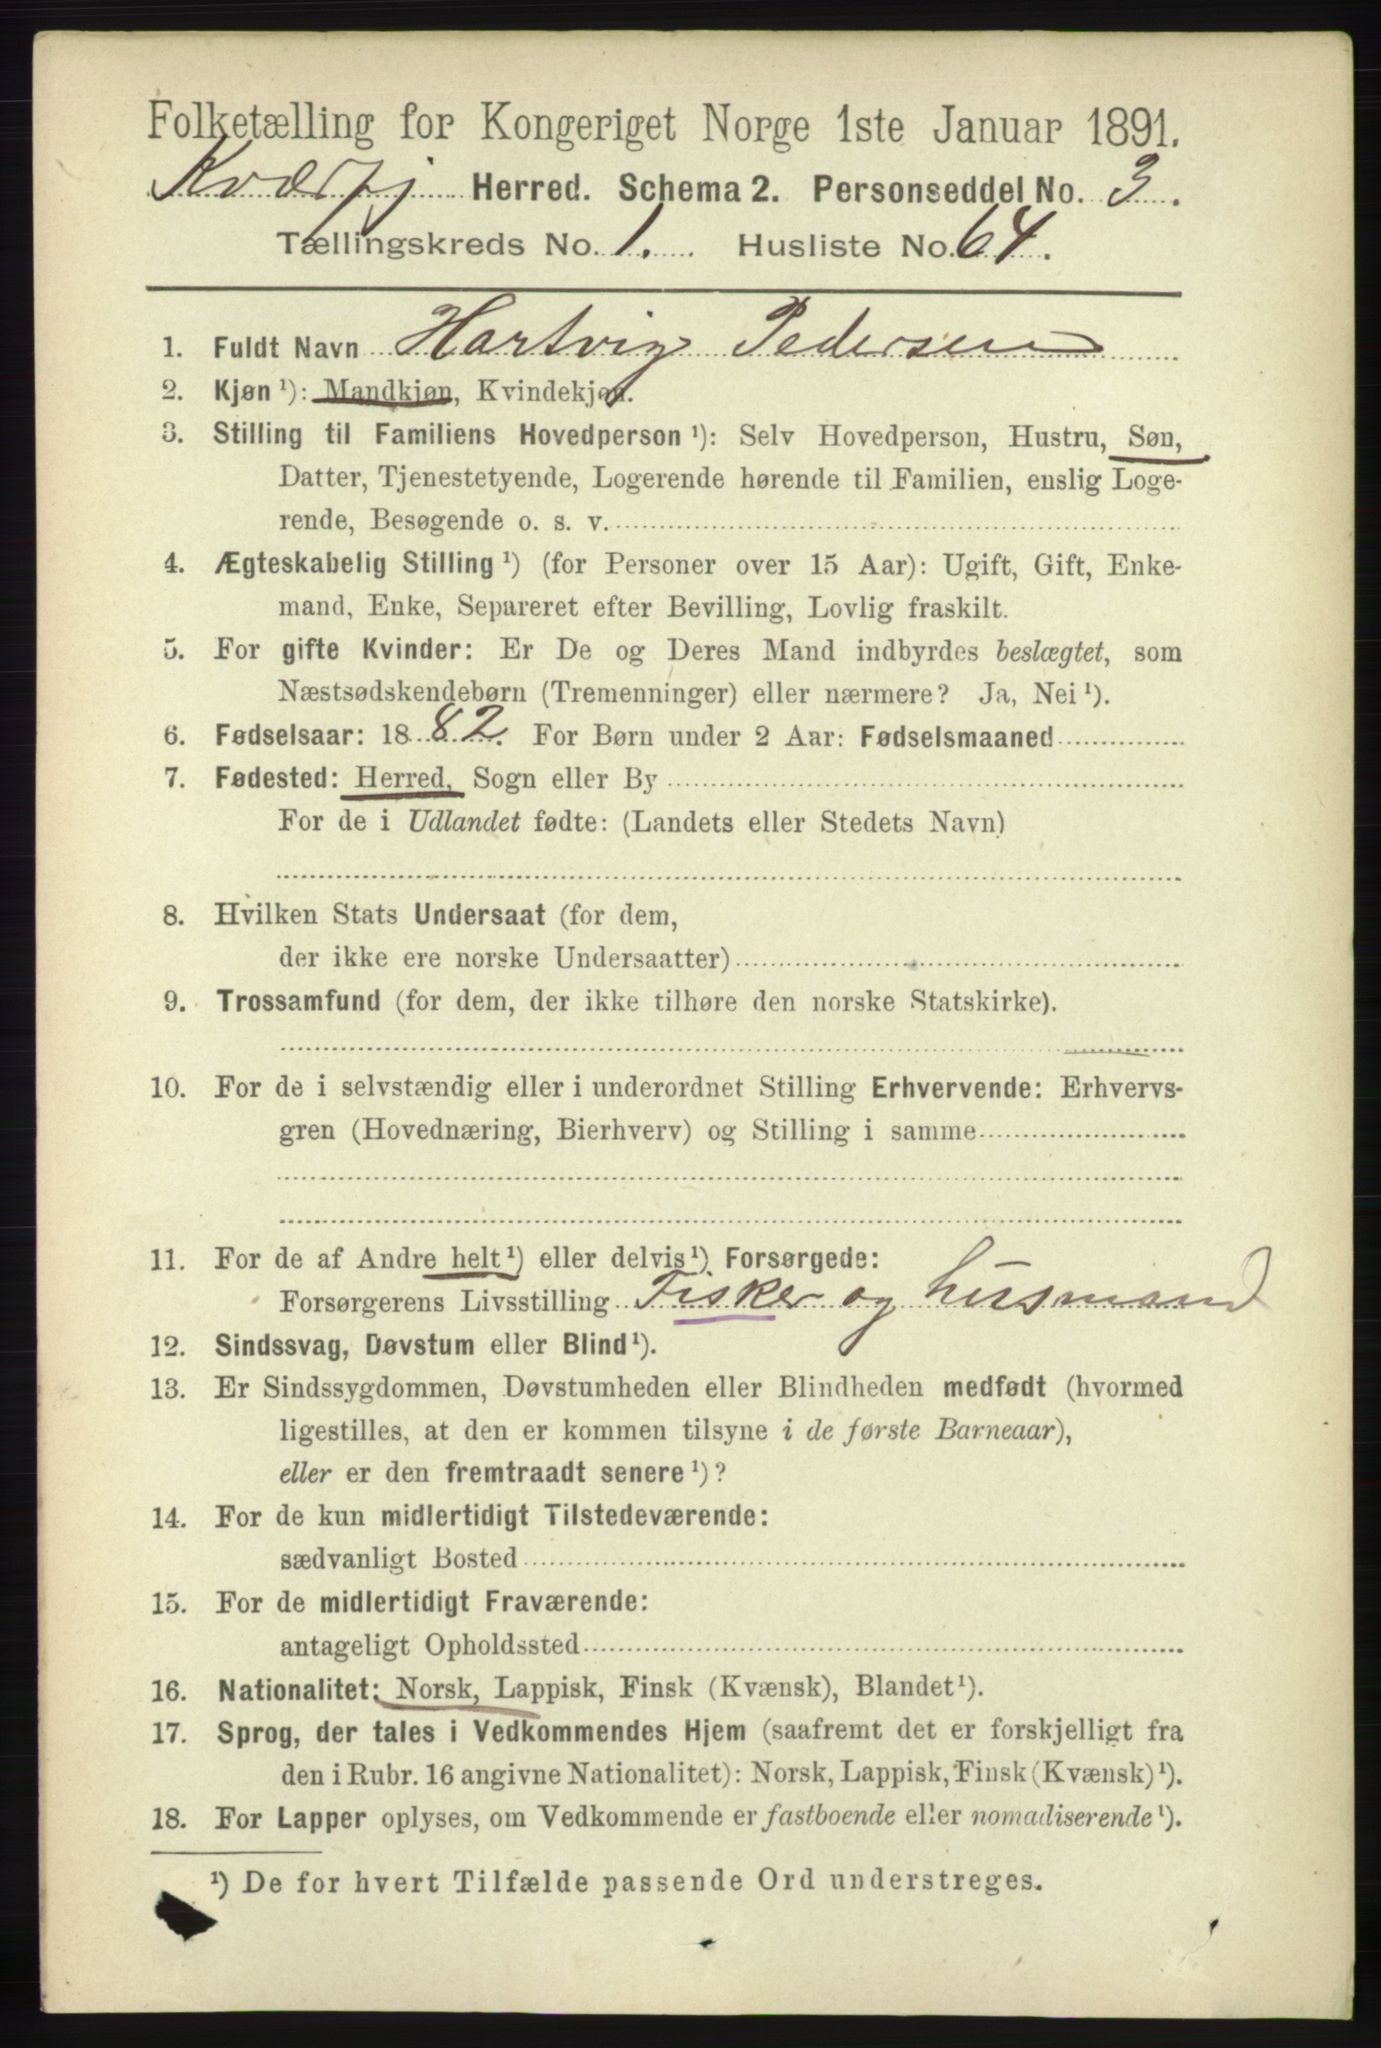 Folketælling for Kongeriget Norge 1ste Januar 1891.
Kvæfj Herred. Schema 2. Personseddel No. 3.
Tællingskreds No. 1. Husliste No. 64.
1. Fuldt Navn Hartvig Pedersen
2. Kjøn ¹): Mandkjøn, Kvindekjøn.
3. Stilling til Familiens Hovedperson ¹): Selv Hovedperson, Hustru, Søn,
Datter, Tjenestetyende, Logerende hørende til Familien, enslig Loge-
rende, Besøgende o. s. v.
4. Ægteskabelig Stilling ¹) (for Personer over 15 Aar): Ugift, Gift, Enke-
mand, Enke, Separeret efter Bevilling, Lovlig fraskilt.
5. For gifte Kvinder: Er De og Deres Mand indbyrdes beslægtet, som
Næstsødskendebørn (Tremenninger) eller nærmere? Ja, Nei ¹).
6. Fødselsaar: 1882. For Børn under 2 Aar: Fødselsmaaned
7. Fødested: Herred, Sogn eller By
For de i Udlandet fødte: (Landets eller Stedets Navn)
8. Hvilken Stats Undersaat (for dem,
der ikke ere norske Undersaatter)
9. Trossamfund (for dem, der ikke tilhøre den norske Statskirke).
10. For de i selvstændig eller i underordnet Stilling Erhvervende: Erhvervs-
gren (Hovednæring, Bierhverv) og Stilling i samme
11. For de af Andre helt ¹) eller delvis ¹) Forsørgede:
Forsørgerens Livsstilling Fisker og husmand
12. Sindssvag, Døvstum eller Blind ¹).
13. Er Sindssygdommen, Døvstumheden eller Blindheden medfødt (hvormed
ligestilles, at den er kommen tilsyne i de første Barneaar),
eller er den fremtraadt senere ¹)?
14. For de kun midlertidigt Tilstedeværende:
sædvanligt Bosted
15. For de midlertidigt Fraværende:
antageligt Opholdssted
16. Nationalitet: Norsk, Lappisk, Finsk (Kvænsk), Blandet ¹).
17. Sprog, der tales i Vedkommendes Hjem (saafremt det er forskjelligt fra
den i Rubr. 16 angivne Nationalitet): Norsk, Lappisk, Finsk (Kvænsk) ¹).
18. For Lapper oplyses, om Vedkommende er fastboende eller nomadiserende ¹).
¹) De for hvert Tilfælde passende Ord understreges.